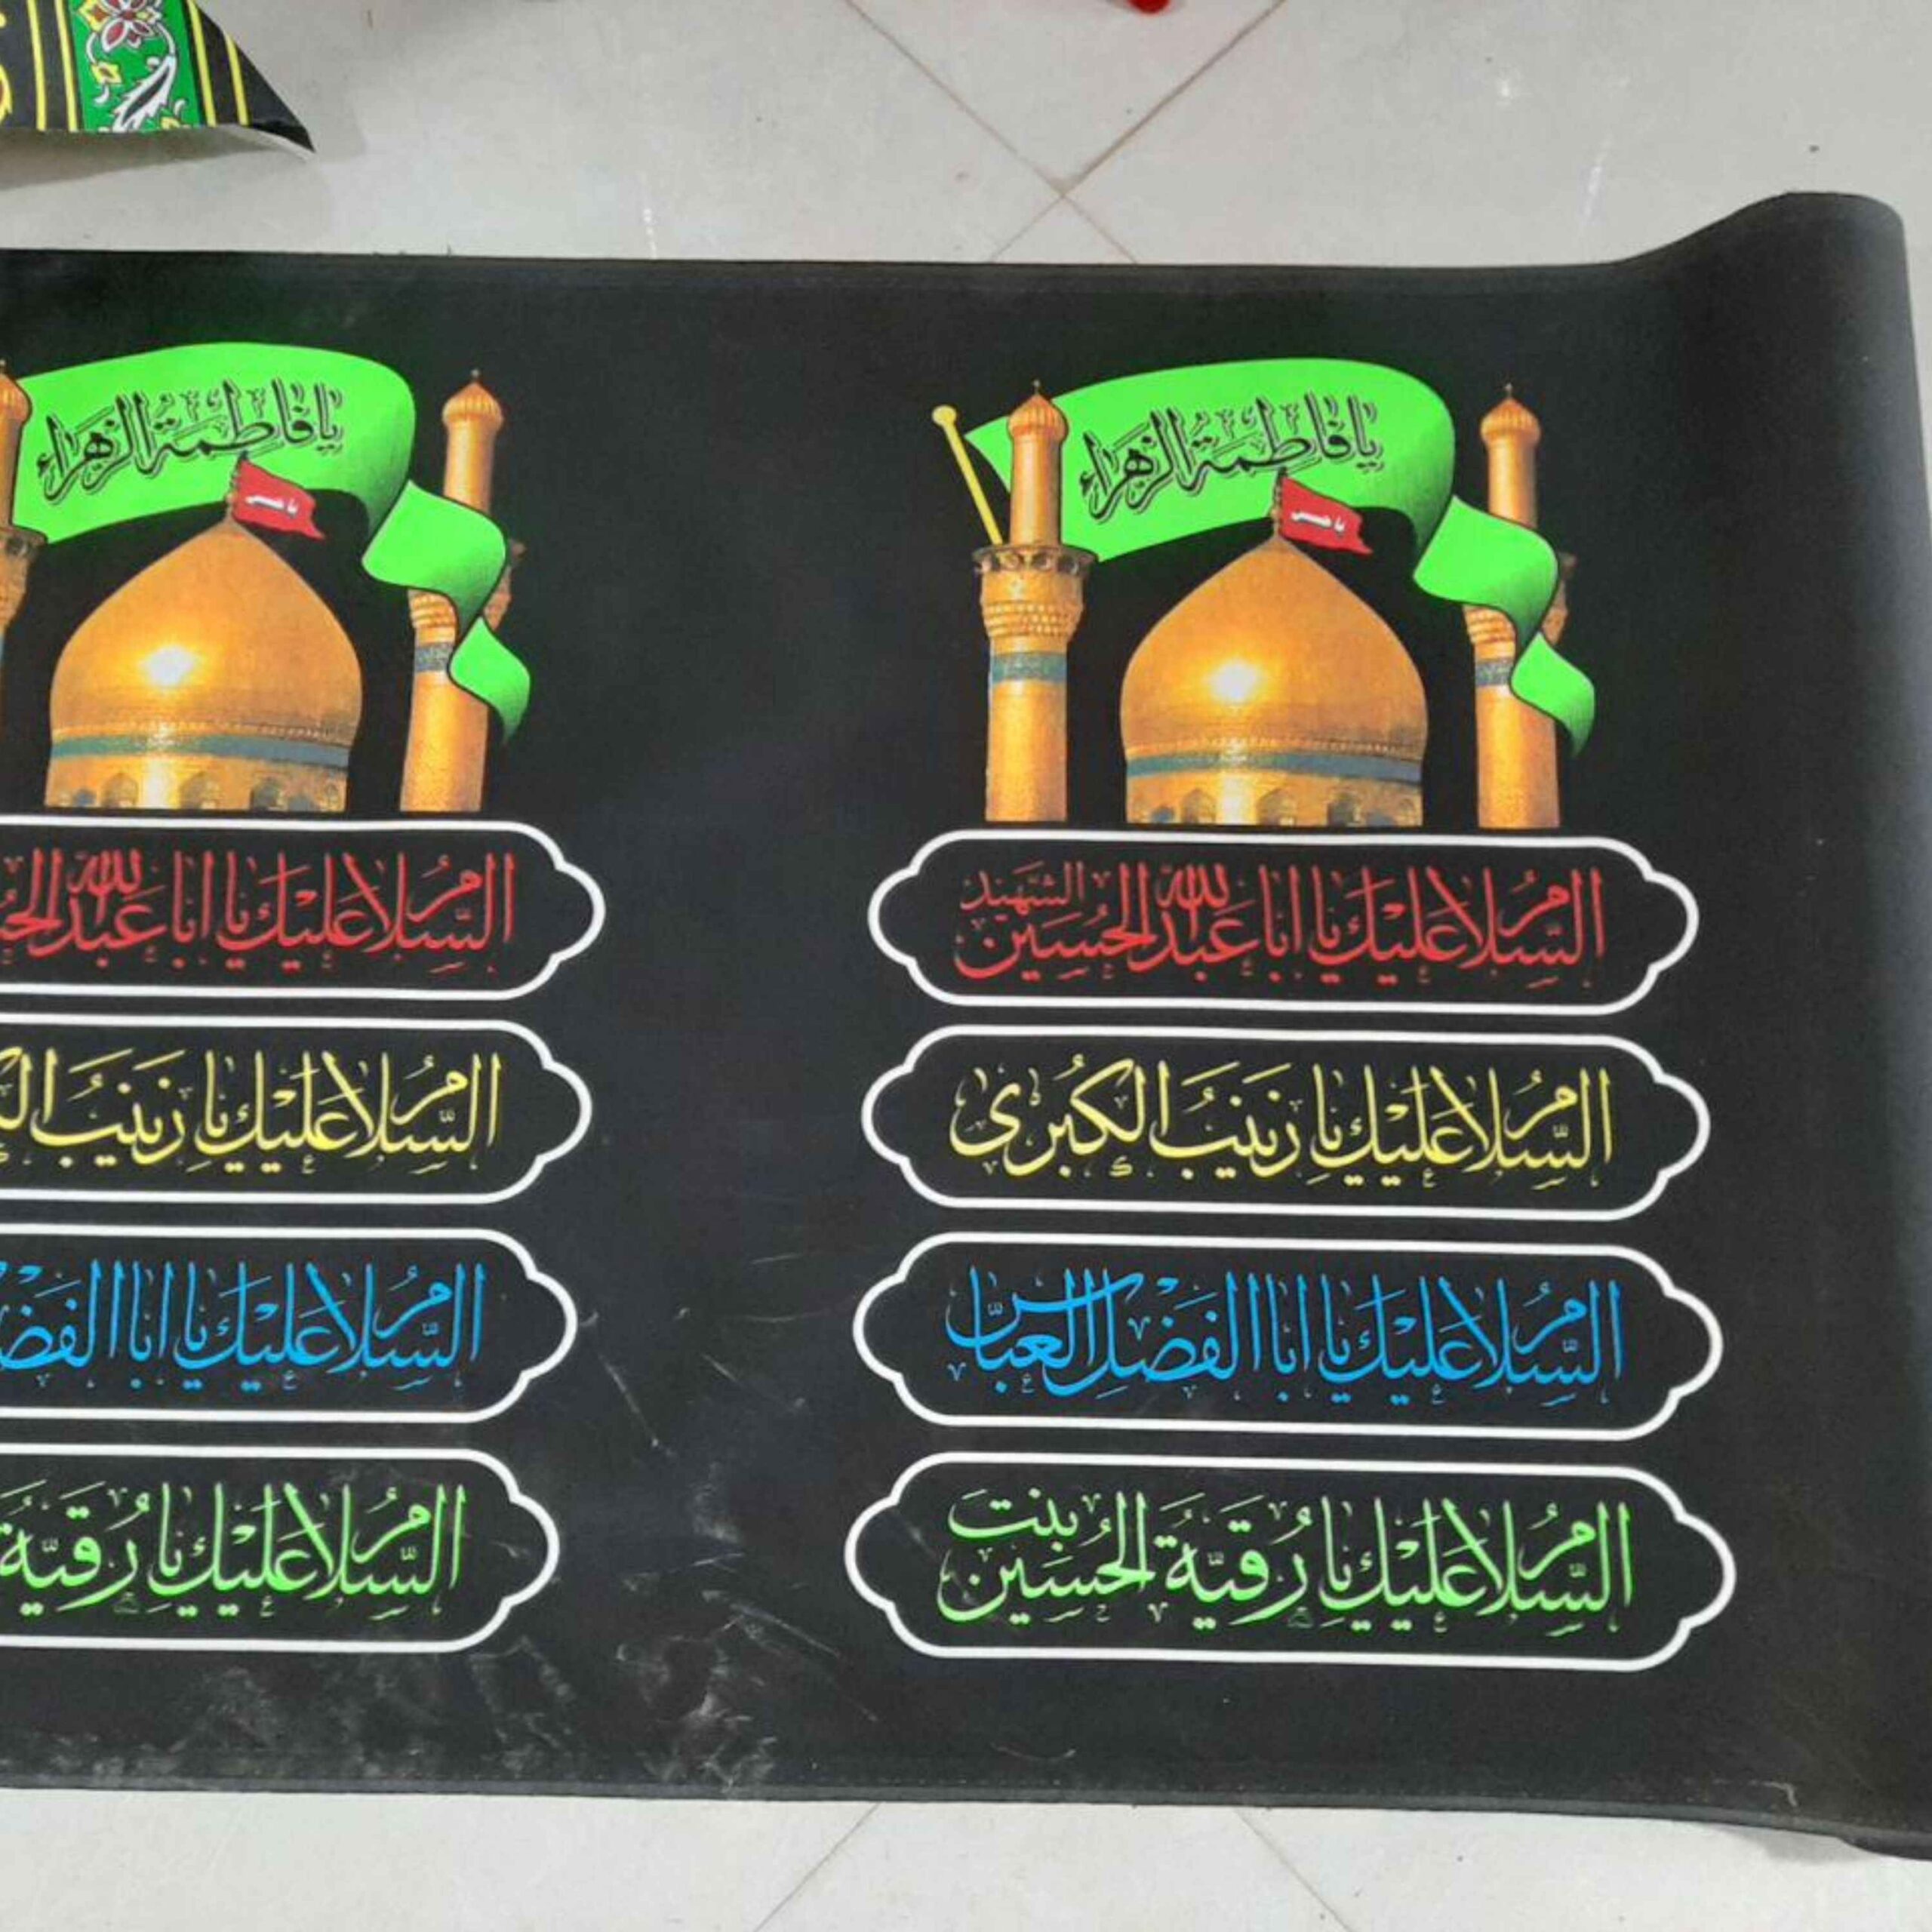 يا فاطمة الزهراء
يا حسين
السلام عليك يا ابا عبدالله الحسين الشهيد
السلام عليك يا زينب الكبرى
السلام عليك يا ابا الفضل العباس
السلام عليك يا رقية بنت الحسين
يا فاطمة الزهراء
يا حسين
السلام عليك يا ابا عبدالله
السلام عليك يا زينب
السلام عليك يا ابا
السلام عليك يا رقية